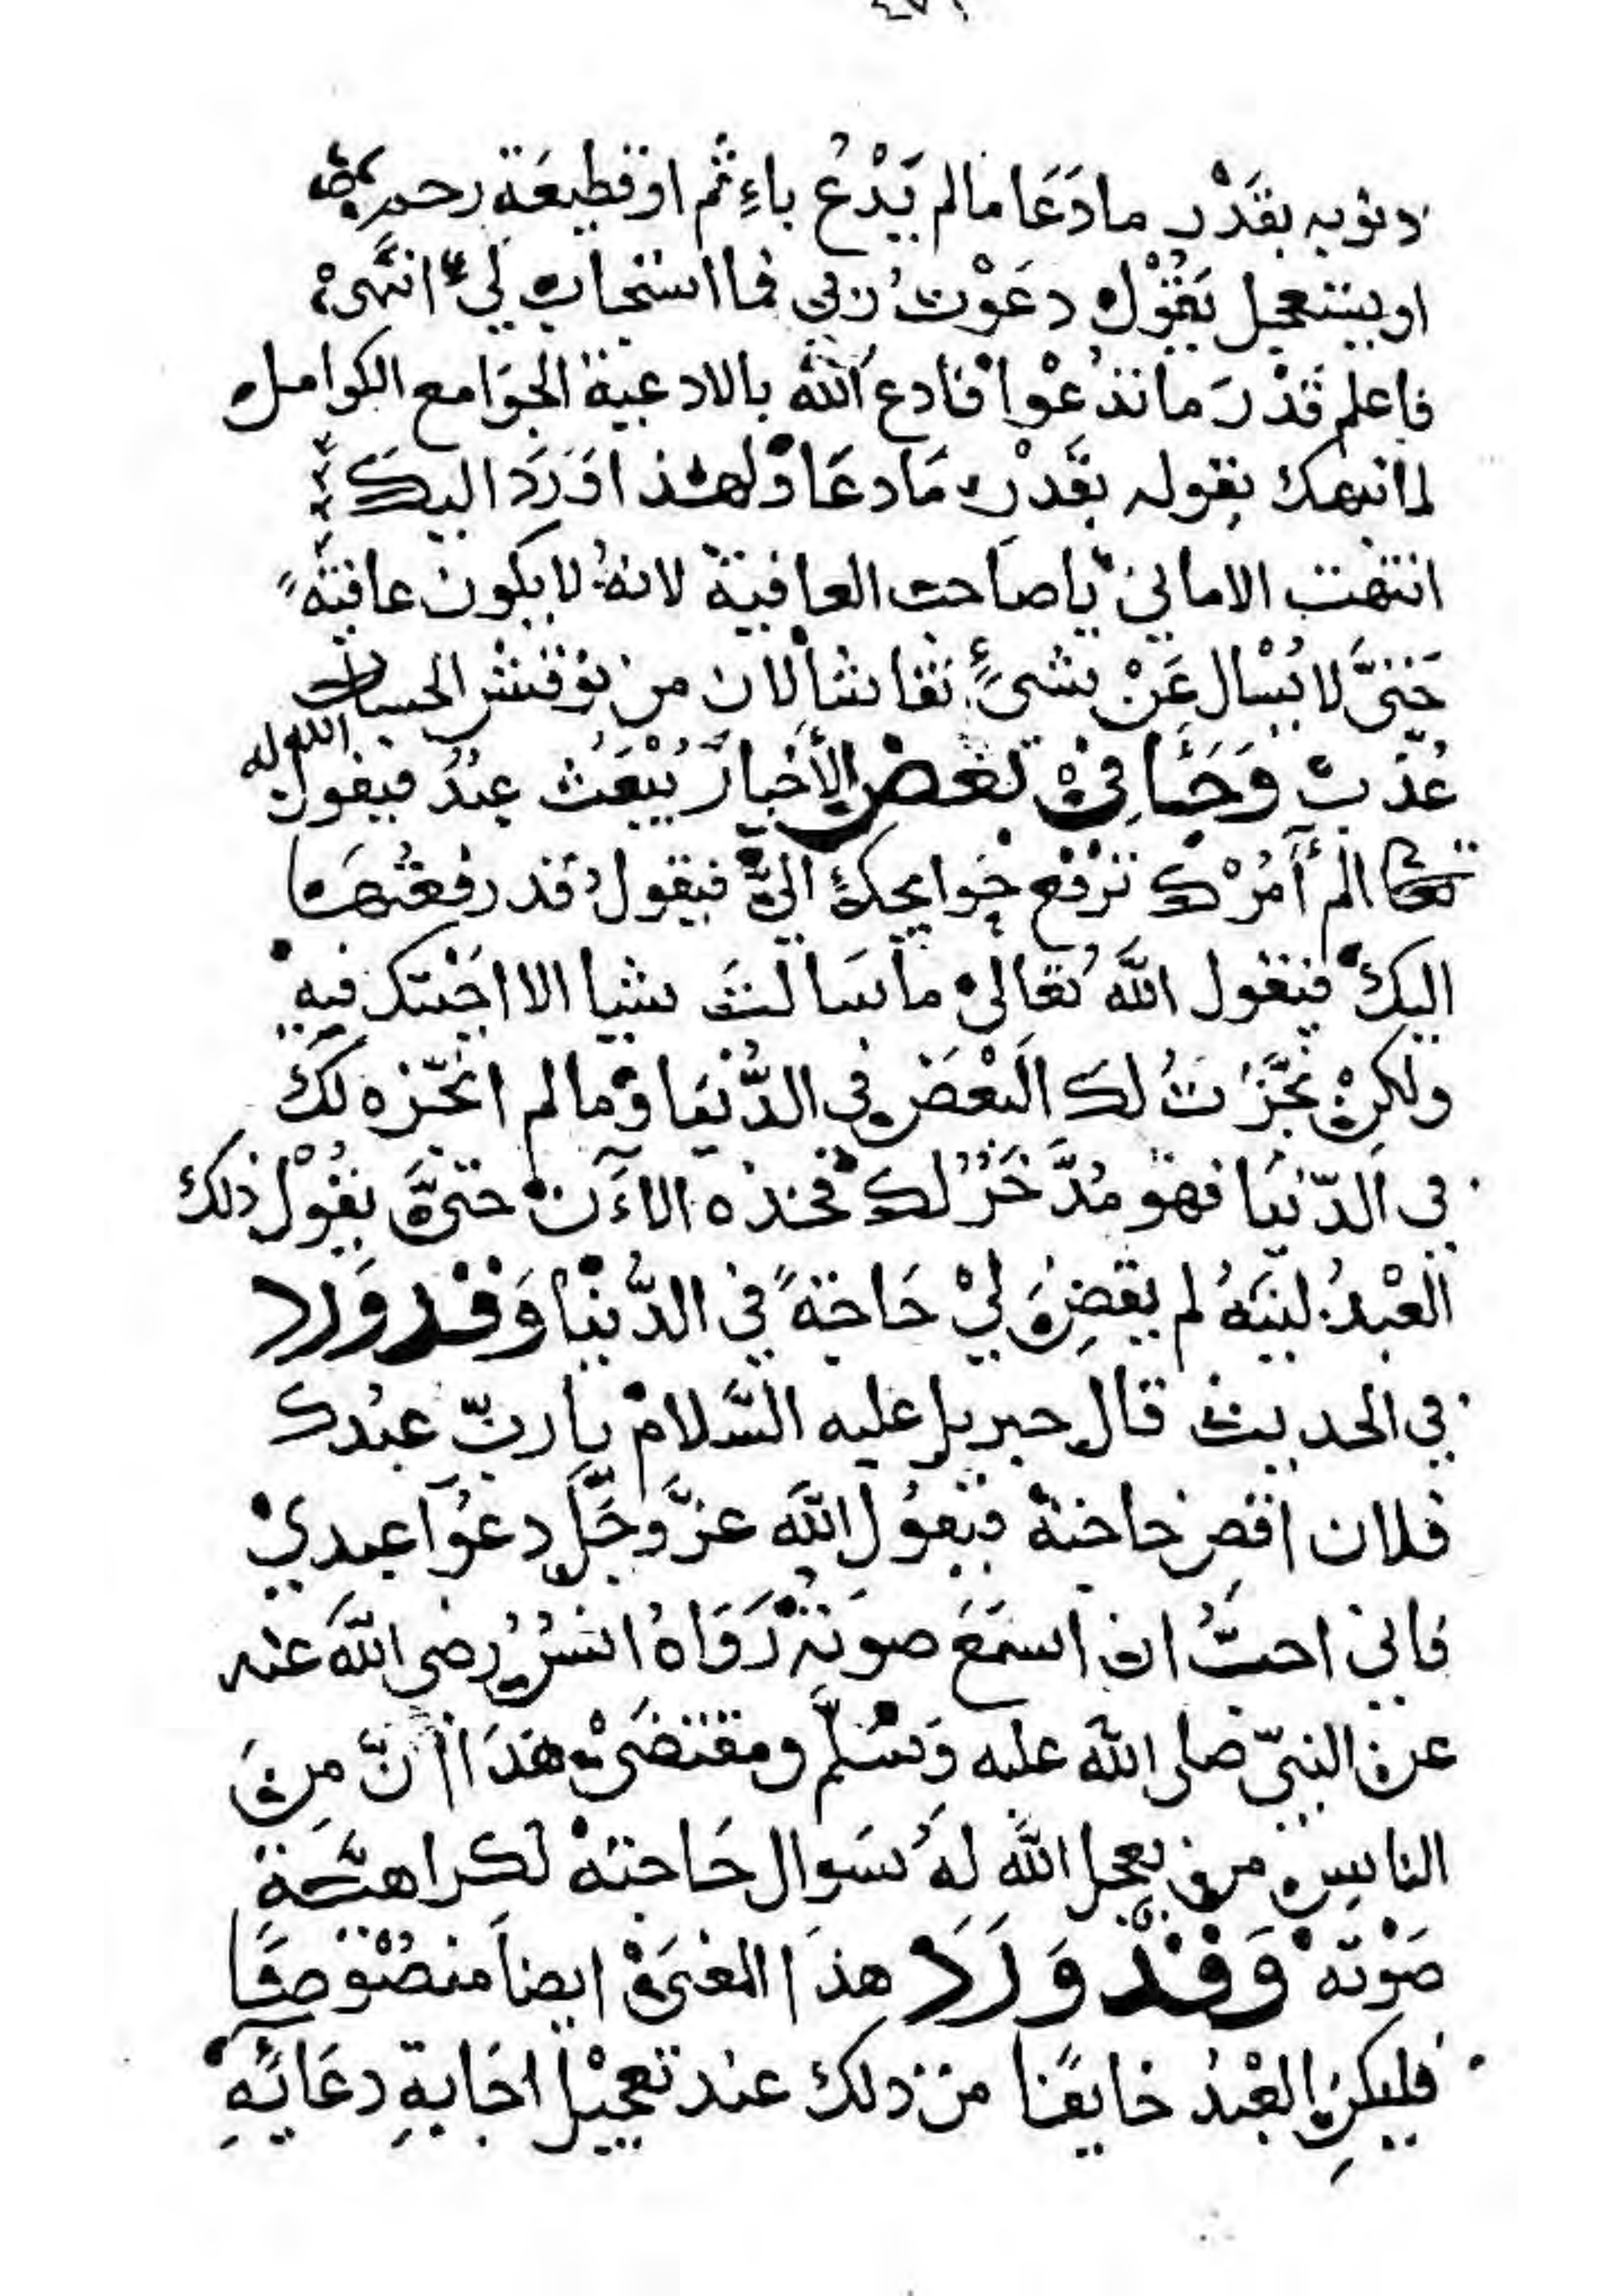 ذنوبه بقَدْر مادَعَا مالم يَدْعُ باءِثم او قطيعَة رحم
او يستعجل يَقُوْل دعَوْت ربي فما استجاب لي انتهى
فاعلم قَدْرَ ما تدعُوا فادع الله بالادعية الجوَامع الكوامل
لما نبهك بقوله بقَدْر مَا دعَا ولهذا وَرَدَ اليكَ
انتهت الاماني ياصاحب العافية لانهُ لا يكون عافيَةً
حَتىَّ لا يُسْال عَنْ شئٍ نقاشا لان من نوقش الحساب
عُذّبَ وَجَاءَ فيْ بَعْضِ الأخبار يُبْعَث عبْدُ فيقول الله له
تعالى الم أمُرْكَ تَرْفع حَوايجكَ اليَّ فيقول قد رفعتُهَا
اليك فيقول اللهُ تعَالى ما سَالتَ شيا الا اجَبْتك فيه
ولكنْ نجَّزْتُ لكَ البَعْضَ في الدُّنْيَا وما لم انجّزه لكَ
في الدّنيَا فهو مُدَّخَرُ لكَ فخذه الاءَن حَتىَّ يقُوْل ذلك
العْبدُ ليتَهُ لم يقضِ ليْ حَاجَةً في الدُّنْيَا وَقْد وَرَد
في الحديث قال جبريل عليه السَّلام يا ربّ عبْدك
فلان اقض حاجته فيَقوُل اللهَ عزَّ وجَلَّ دعوُا عبدي
فاني احبُّ ان اسمَعَ صوته رَوَاهُ انسُ رضي اللهَ عنه
عن النبيّ صلى الله عليه وَسَلَّم ومقتضَى هذَا انّ مِنَ
الناس من يعجل الله لهُ سَوال حَاجته لكراهَة
صَوْته وَقْد وَرَدَ هذَا المعْنَى ايضاً منصُوْصًا
فليكن العْبدُ خايفًا من ذلك عند تعجيْل اجَابةِ دعَايَهِ